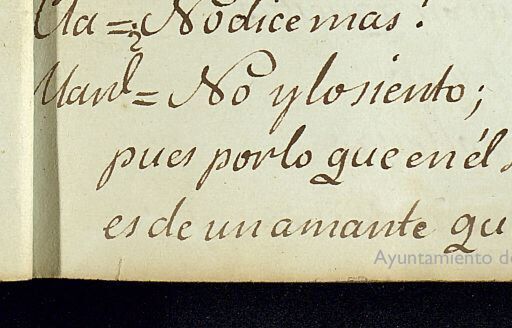 Cla = ¿No dice mas?
Man.l = No y lo siento;
pues por lo que en él
es de un amante qu
Ayuntamiento de